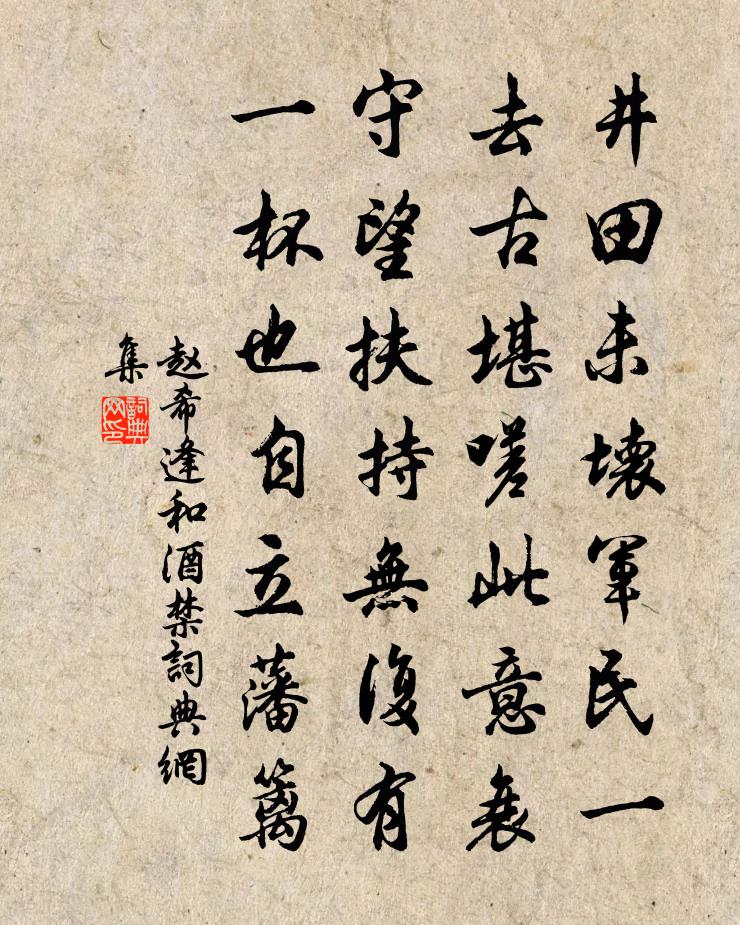 井田未壞軍民一
去古堪嗟此意衰
守望扶持無復有
一杯也自立藩籬
赵希逢和酒禁詞典網
集
詞典
网印